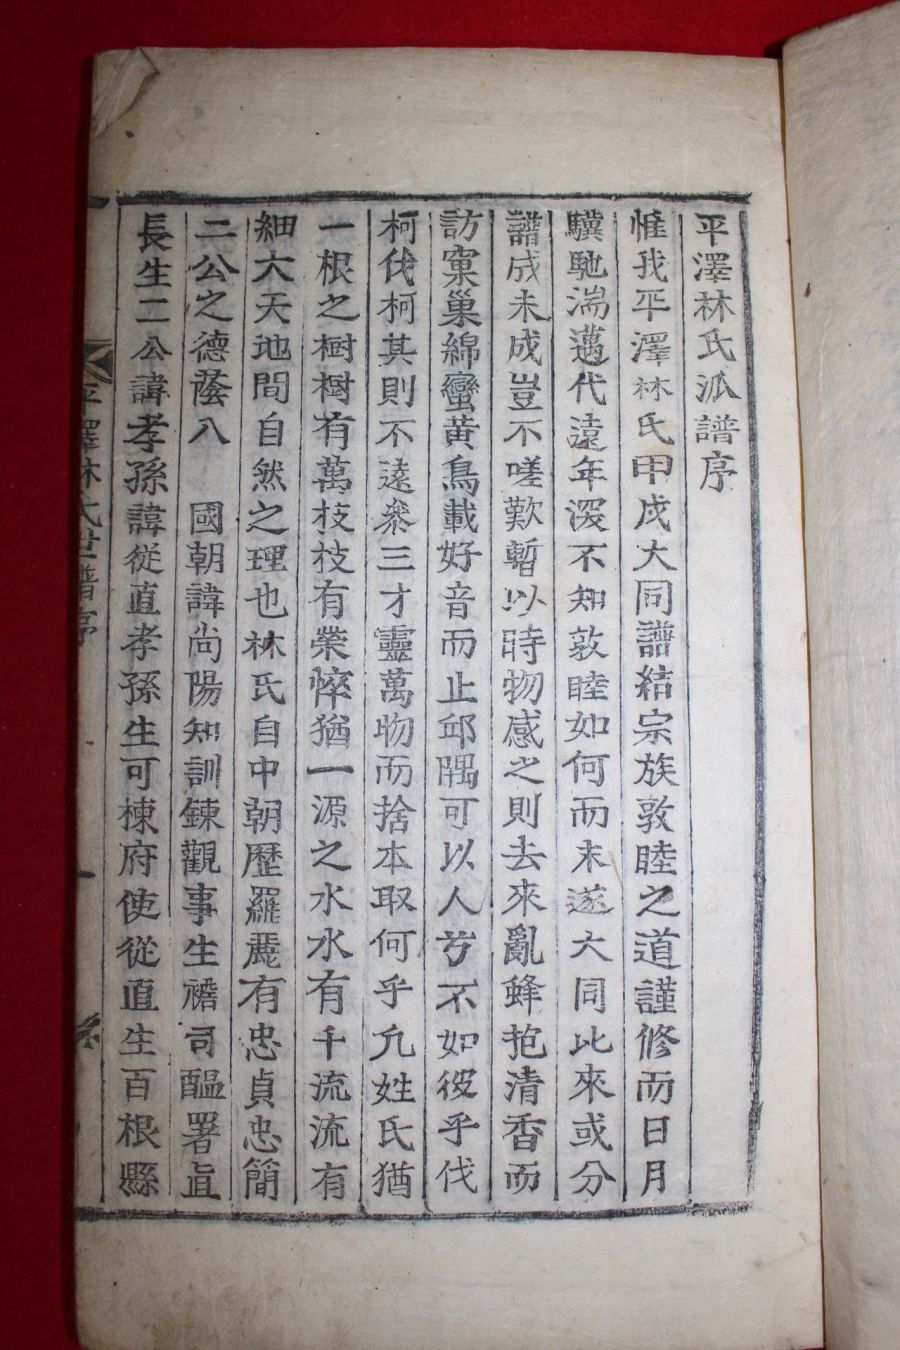 平澤林氏派譜序
惟我平澤林氏甲戌大同譜結宗族敦睦之道謹修而日月
驥馳湍邁代遠年深不知敦睦如何而未遂大同比來或分
譜成未成豈不嗟歎暫以時物感之則去來亂蜂抱清香而
訪窠巢綿蠻黃鳥載好音而止邱隅可以人兮不如彼乎伐
柯伐柯其則不遠叅三才靈萬物而捨本取何乎凡姓氏猶
一根之樹樹有萬枝枝有榮悴猶一源之水水有千流流有
細大天地間自然之理也林氏自中朝歷羅麗有忠貞忠簡
二公之德蔭入 國朝諱尚陽知訓鍊觀事生禧司醞署直
長生二公諱孝孫諱從直孝孫生可棟府使從直生百根縣
平澤林氏世譜序
一